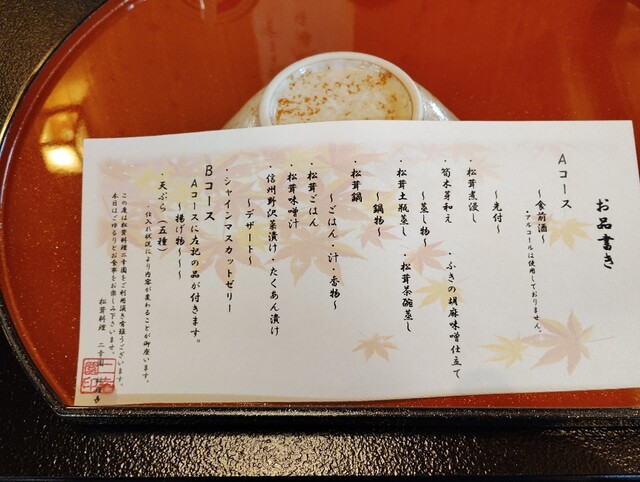 お品書き
Aコース
～食前酒～
・アルコールは使用しておりません。
～先付～
・松茸煮浸し
・筍木芽和え ・ふきの胡麻味噌仕立て
～蒸し物～
・松茸土瓶蒸し ・松茸茶碗蒸し
～鍋物～
・松茸鍋
～ごはん・汁・香物～
・松茸ごはん
・松茸味噌汁
・信州野沢菜漬け・たくあん漬け
～デザート～
・シャインマスカットゼリー
Bコース
Aコースに左記の品が付きます。
～揚げ物～～
・天ぷら（五種）
・仕入れ状況により内容が変わることが御座います。
この度は松茸料理二幸園をご利用頂き有難うございます。
本日はごゆるりとお食事をお楽しみ下さいませ。
松茸料理 二幸園